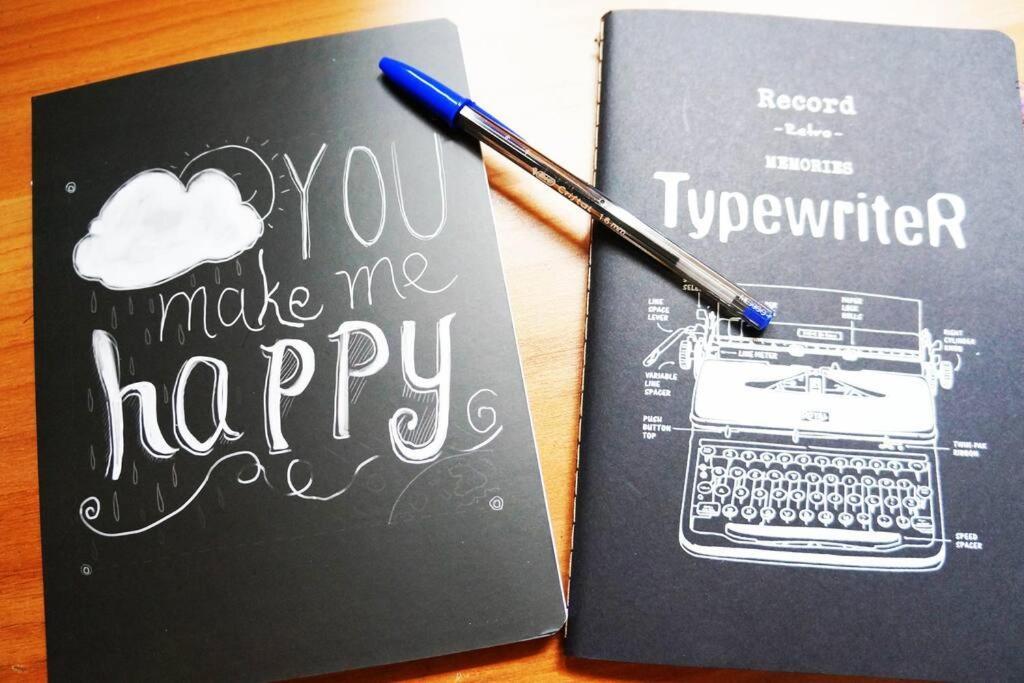 YOU
make me
happy
BIC Cristal 1.6mm
Record
-Retro-
MEMORIES
TypewriteR
LINE
SPACE
LEVER
PAPER
LOCK
ROLLS
RIGHT
CYLINDER
KNOB
LINE METER
VARIABLE
LINE
SPACER
PUSH
BUTTON
TOP
TWIN-PAK
RIBBON
SPEED
SPACER